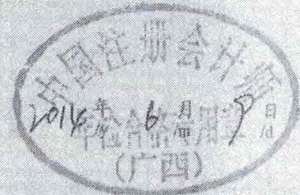 中国注册会计师
2014年6月9日
年检合格专用章
(广西)